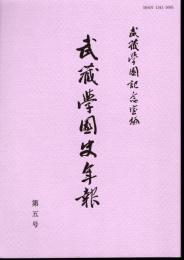 武蔵学園記念室編
武蔵學園史年報
第五号